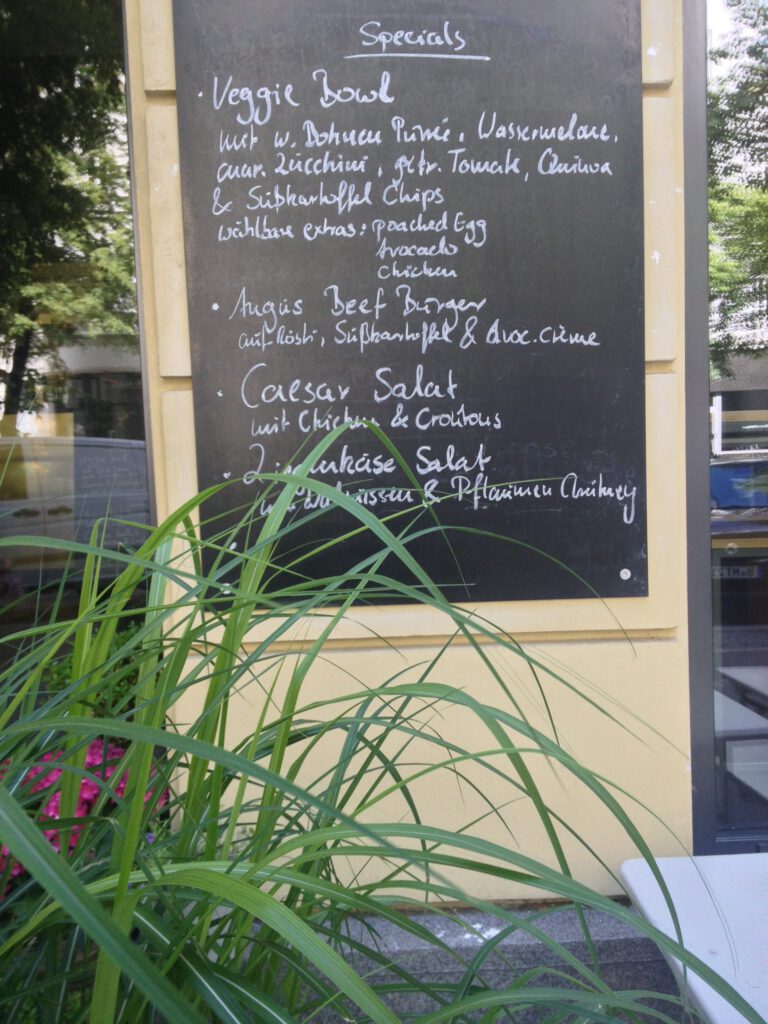 Specials
· Veggie Bowl
mit w. Bohnen Püree, Wassermelone,
mar. Zucchini, getr. Tomate, Quinoa
& Süßkartoffel Chips
wählbare extras: poached Egg
Avocado
Chicken
· Angus Beef Burger
auf Rösti, Süßkartoffel & Avoc.crème
· Caesar Salat
mit Chicken & Croûtous
· Ziegenkäse Salat
mit Walnüssen & Pflaumen Chutney